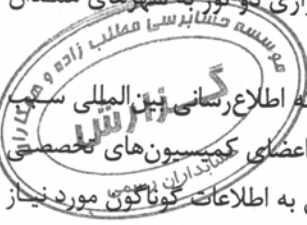 برگزاری دو تور به شهرهای همدان
موسسه حسابرسی مطلب زاده و همکاران
گزارش
حسابداران رسمی
ه اطلاع‌رسانی بین‌المللی سـمت
اعضای کمیسیون‌های تخصصـی
ی به اطلاعات گوناگون مورد نیـاز